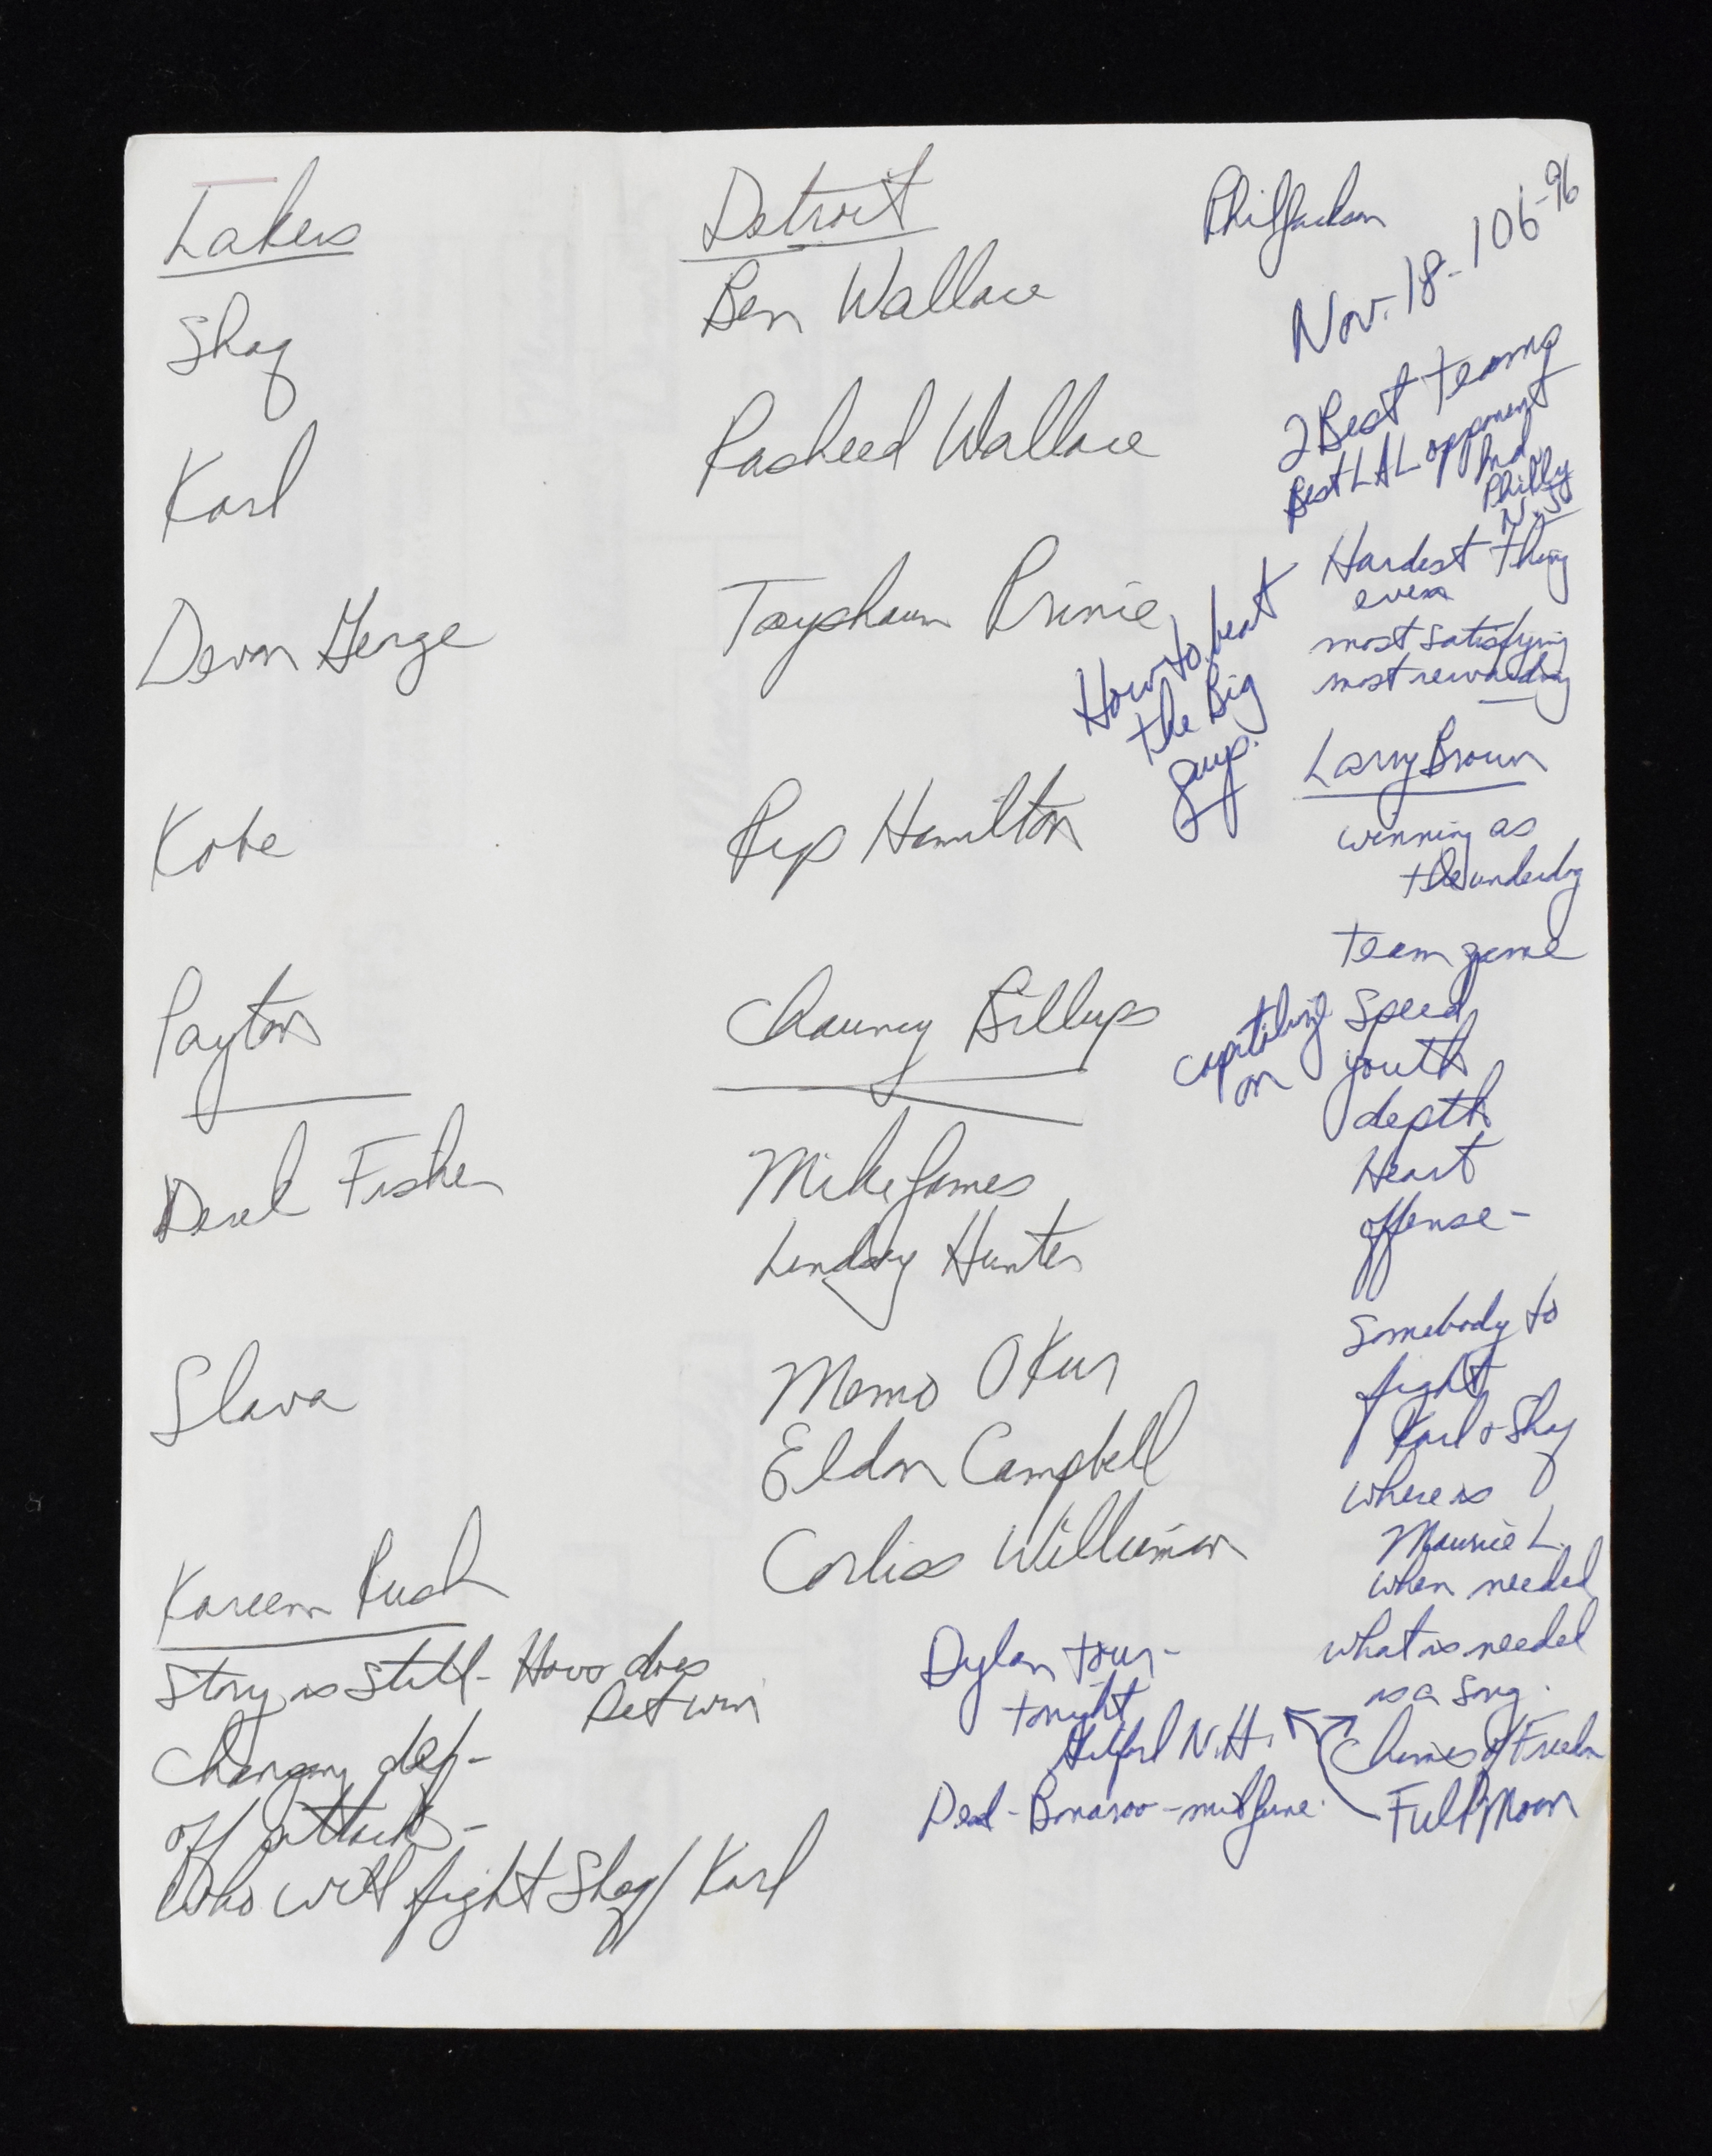 Lakers
Shaq
Karl
Devon George
Kobe
Payton
Derek Fisher
Slava
Kareem Rush
Story is still - How does
Det win
Changing def -
off attack -
Who will fight Shaq / Karl
Detroit
Ben Wallace
Rasheed Wallace
Tayshaun Prince
Rip Hamilton
Chauncy Billups
Mike James
Lindsay Hunter
Memo Okur
Eldon Campbell
Corliss Williamson
Dylan tour -
tonight
Gilford N.H.
Dead - Bonaroo - mid June
Phil Jackson
Nov. 18 - 106-96
2 Best teams
Best LAL opponent
Ind
Philly
N.J.
Hardest thing
ever
most satisfying
most rewarding
How to beat
the Big
guys.
Larry Brown
winning as
the underdog
team game
capitalizing on
speed
youth
depth
Heart
offense -
somebody to
fight
Karl & Shaq
where is
Maurice L.
when needed
what is needed
is a song.
Chimes of Freedom
Full Moon